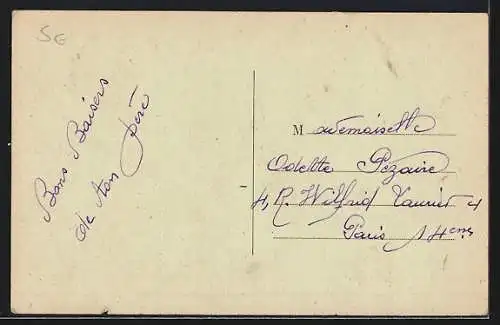 5€
Bons Baisers
de ton père
Mademoiselle
Odette Pezaire
4, R. Wilfrid Laurier 4
Paris 14ème